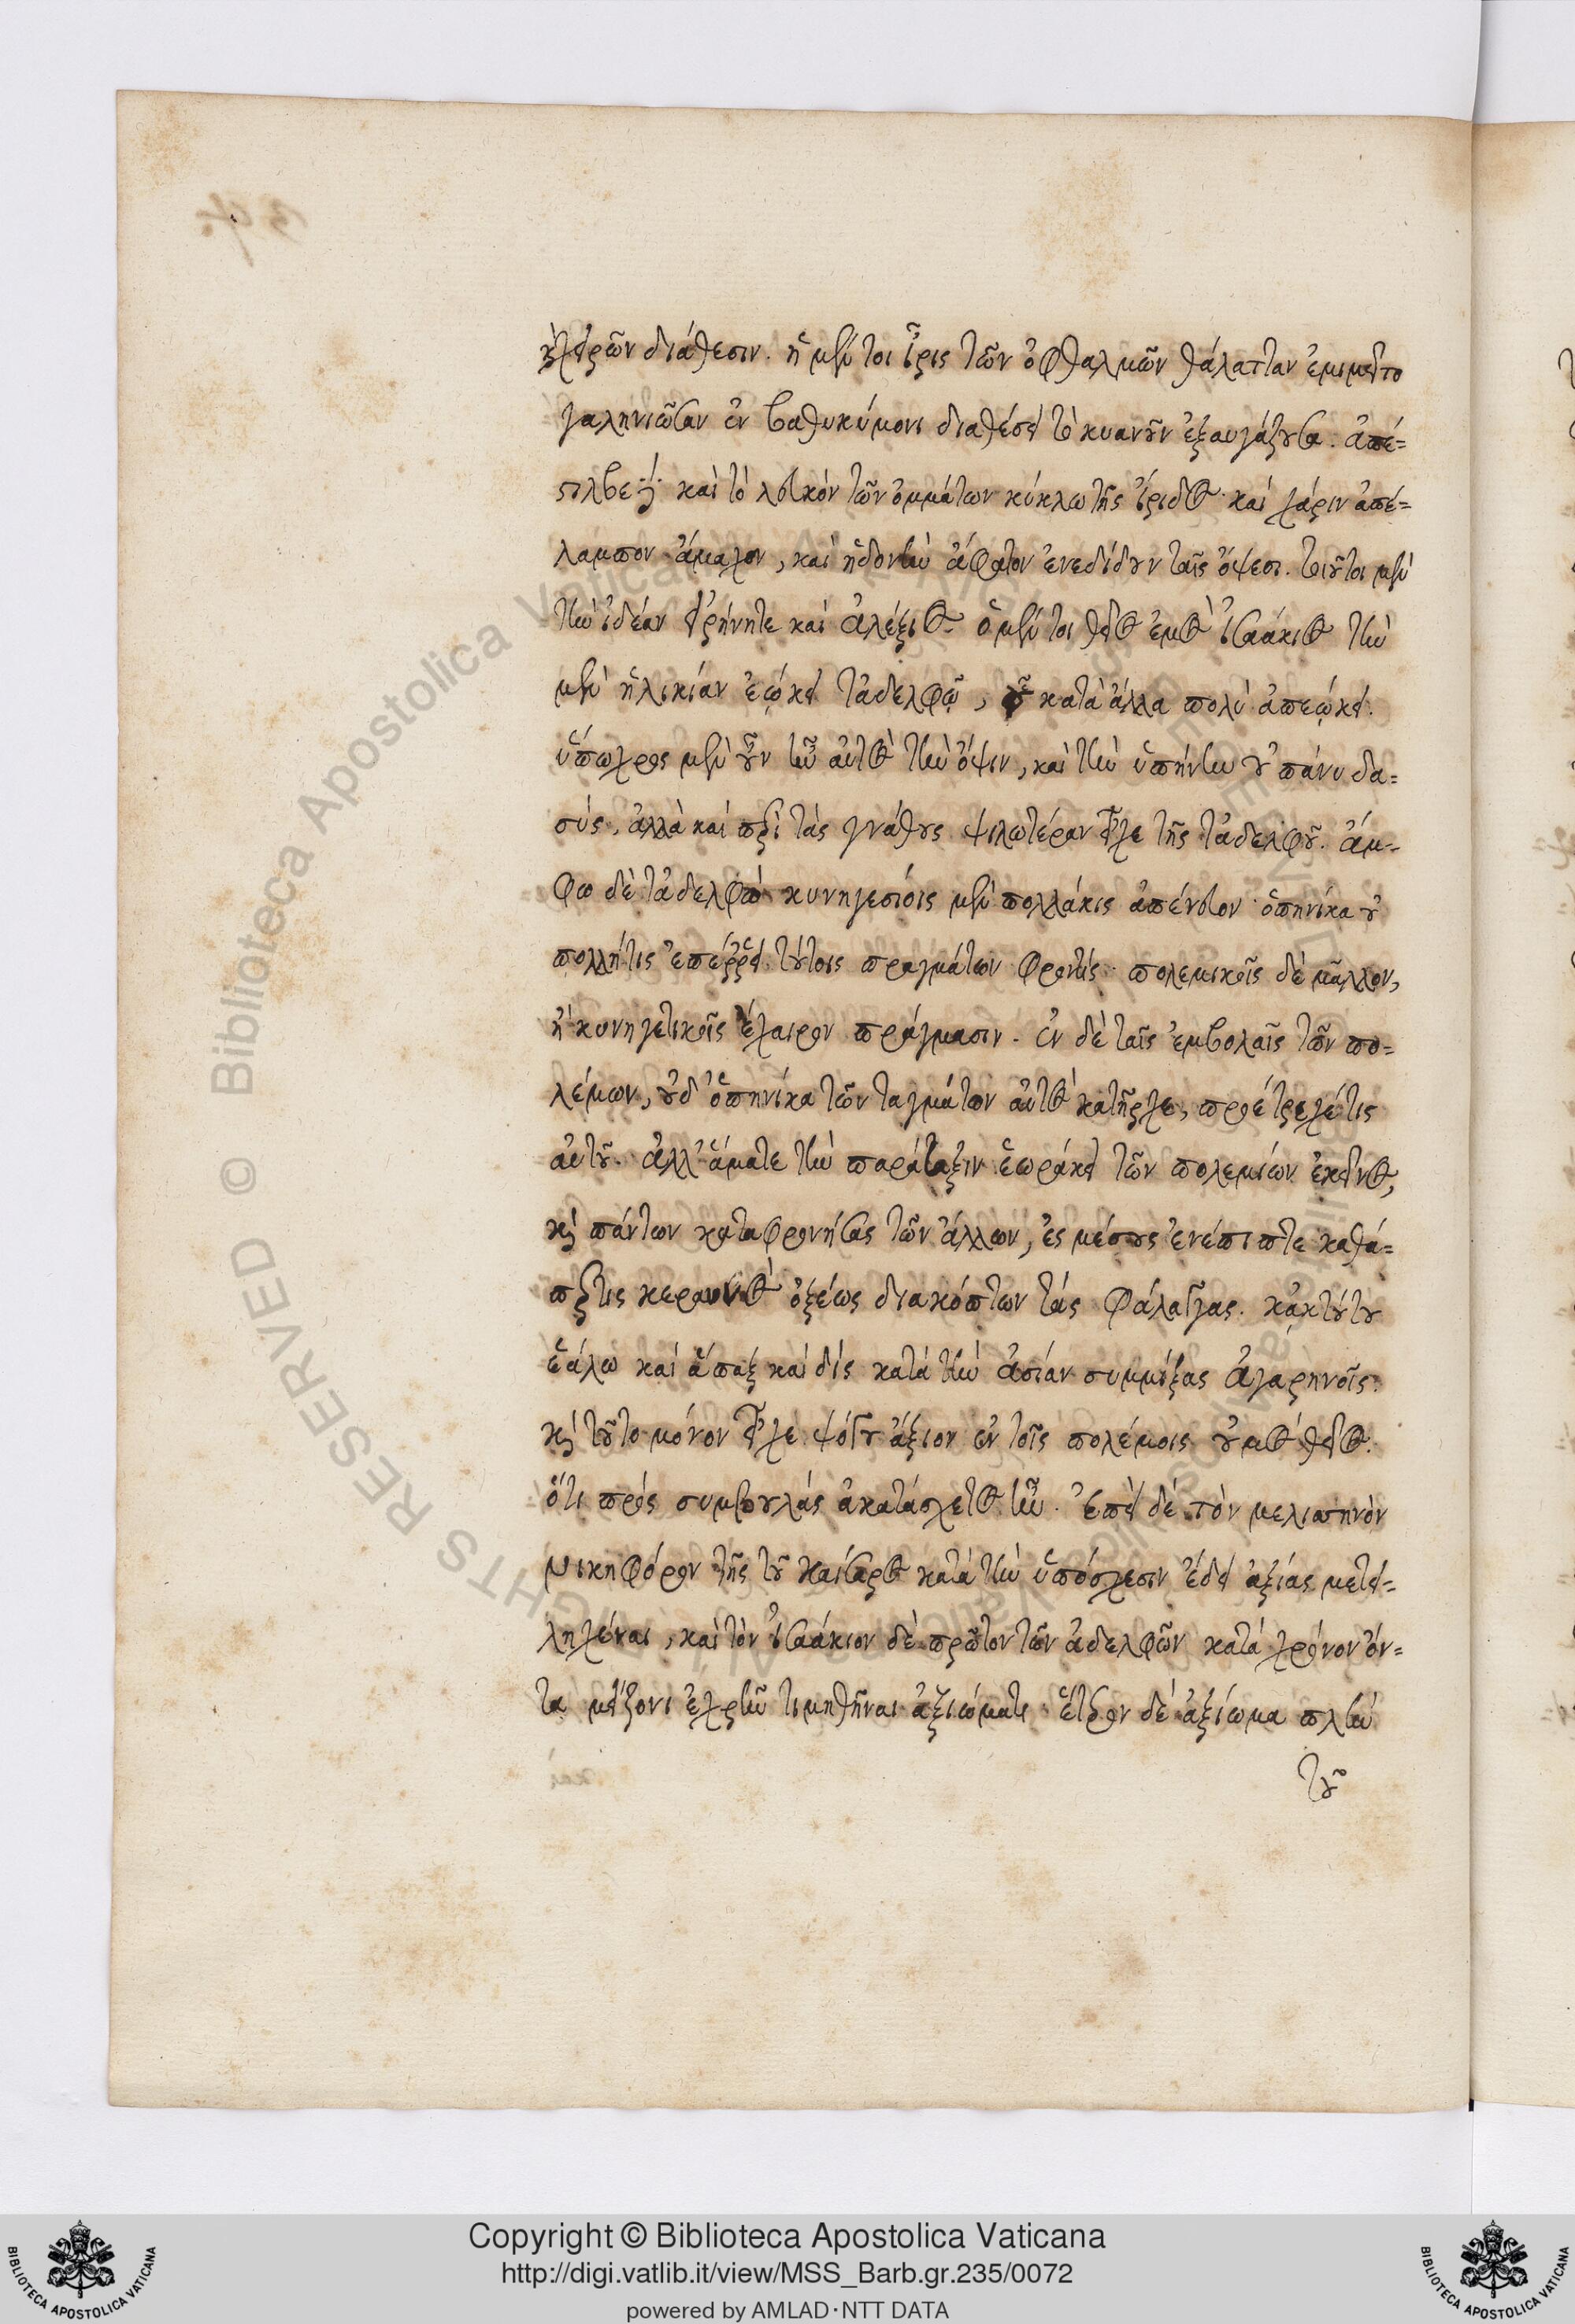 καὶ χειρῶν διάθεσιν. ἡ μέν τοι ἶρις τῶν ὀφθαλμῶν θάλατταν ἐμιμεῖτο
γαληνιῶσαν ἐν βαθυκύμονι διαθέσει τὸ κυανοῦν ἐξαυγάζουσα. ἀπέ=
στιλβε δὲ καὶ τὸ λευκὸν τῶν ὀμμάτων κύκλω τῆς ἴριδος καὶ χάριν ἀπέ=
λαμπον ἄμαχον, καὶ ἡδονὴν ἄφατον ἐνεδίδουν ταῖς ὄψεσι. τοιοῦτοι μὲν
τὴν ἰδέαν εἰρήνητε καὶ ἀλέξιος. ὁ μέν τοι θεῖος ἐμὸς ἰσαάκιος τὴν
μὲν ἡλικίαν ἐῴκει τἀδελφῷ, οὐ κατὰ ἄλλα πολὺ ἀπεῴκει.
ὕπωχρος μὲν οὖν ἦν αὐτὸς τὴν ὄψιν, καὶ τὴν ὑπήνην οὐ πάνυ δα=
σύς, ἀλλὰ καὶ περὶ τὰς γνάθους ψιλωτέραν εἶχε τῆς τἀδελφοῦ. ἄμ=
φω δὲ τἀδελφὼ κυνηγεσίοις μὲν πολλάκις ἀπένευον ὁπηνίκα οὐ
πολλήτις ἐπέρρει τούτοις πραγμάτων φροντίς. πολεμικοῖς δὲ μᾶλλον,
ἢ κυνηγετικοῖς ἔχαιρον πράγμασιν. ἐν δὲ ταῖς ἐμβολαῖς τῶν πο=
λέμων, οὐδ' ὁπηνίκα τῶν ταγμάτων αὐτὸς κατῆρχε, προέτρεχέ τις
αὐτοῦ. ἀλλ' ἅματε τὴν παράταξιν ἑωράκει τῶν πολεμίων ἐκεῖνος,
καὶ πάντων καταφρονήσας τῶν ἄλλων, ἐς μέσους ἐνέπιπτε καθά=
περ τις κεραυνὸς ὀξέως διακόπτων τὰς φάλαγγας. κἀκ τούτου
ἑάλω καὶ ἅπαξ καὶ δὶς κατὰ τὴν ἀσίαν συμμίξας ἀγαρηνοῖς.
καὶ τοῦτο μόνον εἶχε ψόγου ἄξιον ἐν τοῖς πολέμοις οὑμὸς θεῖος.
ὅτι πρὸς συμβουλὰς ἀκατάσχετος ἦν. ἐπεὶ δὲ τὸν μελισηνὸν
νικηφόρον τῆς τοῦ καίσαρος κατὰ τὴν ὑπόσχεσιν ἔδει ἀξίας μετει=
ληχέναι, καὶ τὸν ἰσαάκιον δὲ πρῶτον τῶν ἀδελφῶν κατὰ χρόνον ὄν=
τα μείζονι ἐχρῆν τιμηθῆναι ἀξιώματι. ἕτερον δὲ ἀξίωμα πλὴν
τοῦ